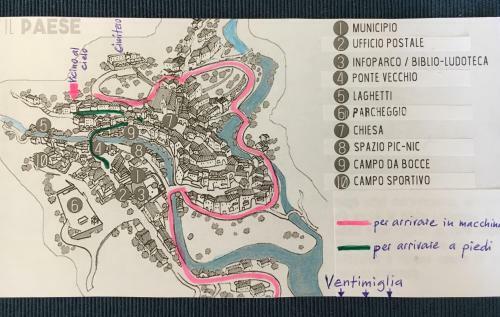 IL PAESE
Vicino al
cielo
Cimitero
1 MUNICIPIO
2 UFFICIO POSTALE
3 INFOPARCO / BIBLIO-LUDOTECA
4 PONTE VECCHIO
5 LAGHETTI
6 PARCHEGGIO
7 CHIESA
8 SPAZIO PIC-NIC
9 CAMPO DA BOCCE
10 CAMPO SPORTIVO
per arrivare in macchina
per arrivare a piedi
Ventimiglia
5
7
9
4
8
10
1
6